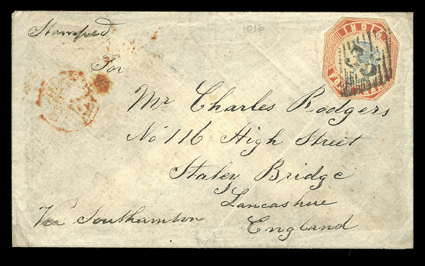 Stamped
1016
INDIA
For
Mr Charles Rodgers
No 116 High Street
Staley Bridge
Lancashire
Via Southamton
England